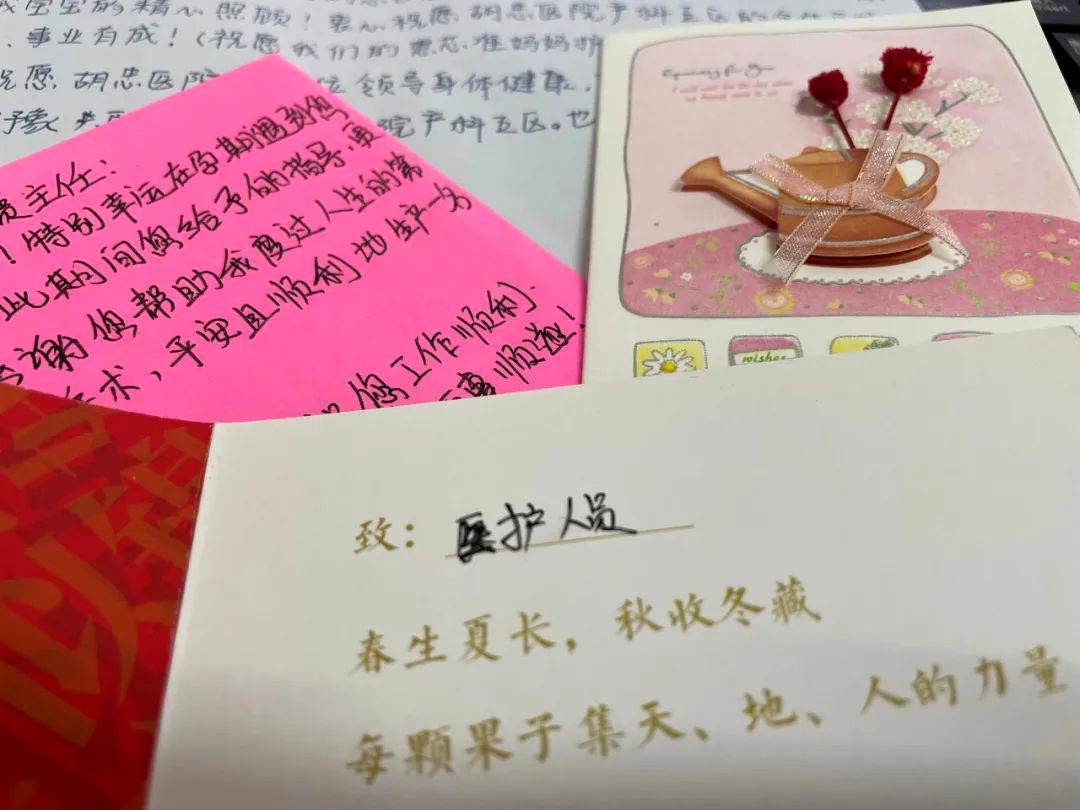 宝宝的精心照顾！衷心祝愿胡忠医院产科五区的全体
事业有成！（祝愿我们的 准妈妈护
祝愿 胡忠医院 领导身体健康，
院产科五区。也
主任：
！特别幸运在孕期遇到您
此期间您给予的指导，更
谢您帮助我度过人生的第
术，平安且顺利地生产一名
您工作顺利，
事顺遂！
wishes
致：医护人员
春生夏长，秋收冬藏
每颗果子集天、地、人的力量